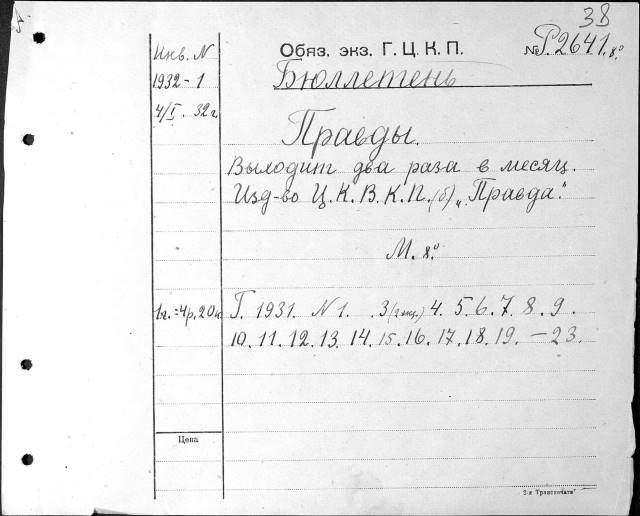 38
Инв. N Обяз. экз. Г. Ц. К. П. № Р.2641.8.º
1932-1 Бюллетень
4/I. 32 г.
Правды.
Выходит два раза в месяц.
Изд-во Ц. К. В. К. П. (б) „Правда."
М. 8.º
1г.=4р.20к Г. 1931. N 1. 3(2 экц.) 4. 5. 6. 7. 8. 9.
10. 11. 12. 13. 14. 15. 16. 17. 18. 19. — 23.
Цена
2-я Транспечать"